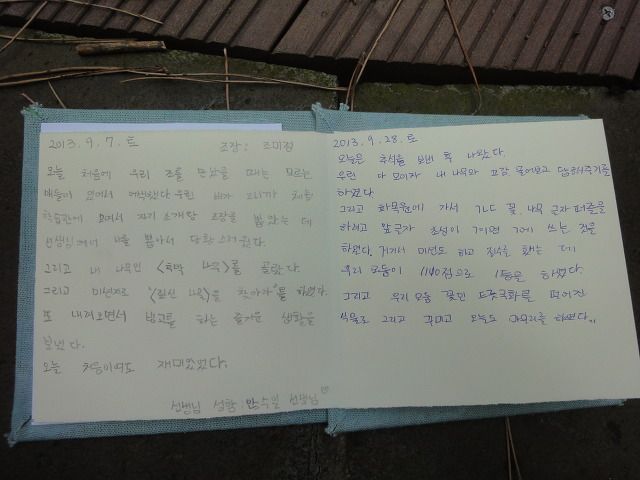 2013. 9. 7. 토
조장: 조미정
오늘 처음에 우리 조를 만났을 때는 모르는
애들이 있어서 어색했다. 우린
학습관에 모여서 자기 소개랑 조장을 뽑았는 데
선생님께서 나를 뽑아서 당황스러웠다.
그리고 내 나무인 <측백 나무>를 골랐다.
그리고 미션지로 '<당신 나무>을 찾아라'를 하였다.
또 내려오면서 빙고를 하는 즐거운 생활을
보냈다.
오늘 처음이여도 재미있었다.
선생님 성함: 안수일 선생님
2013. 9. 28. 토
오늘은 추석을 보낸 후 나왔다.
우린 다 모이자 내 나무와 교감 물어보고 답해주기를
하였다.
그리고 화목원에 가서 ㄱㄴㄷ 꽃, 나무 글자 퍼즐을
하려고 말 글자 초성이 ㄱ이면 ㄱ에 쓰는 것을
하였다. 거기서 미션도 하고 퀴즈를 했는 데
우리 모둠이 1140점으로 1등을 하였다.
그리고 우리 모둠 꽃인 으로 떨어진
식물로 그리고 꾸미고 오늘도 마무리를 하였다.